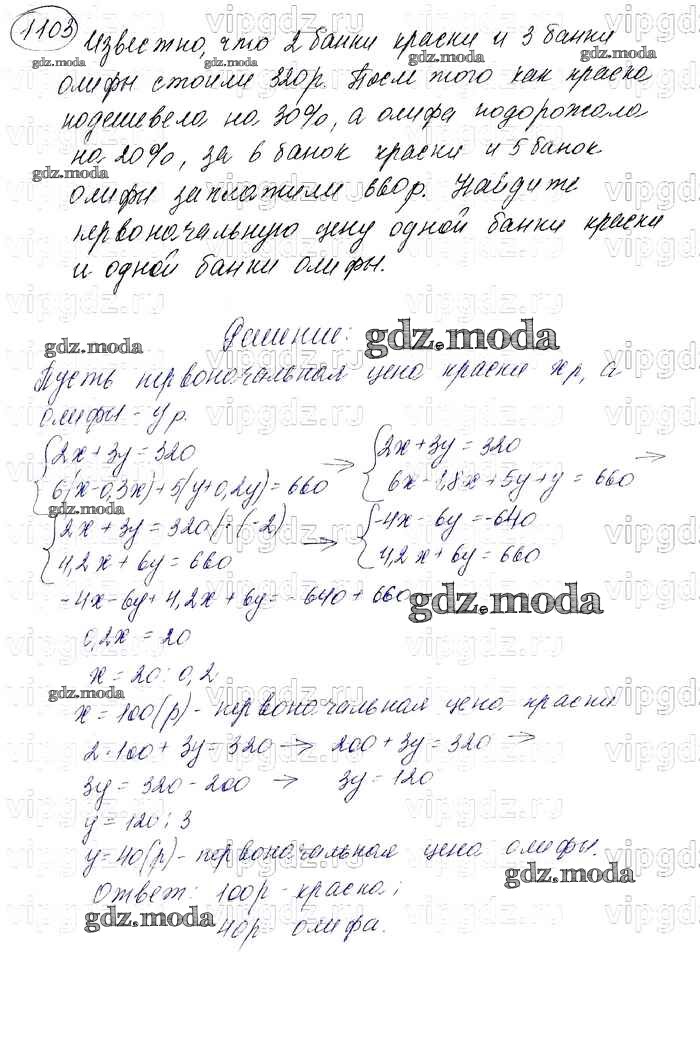 1103
Известно, что 2 банки краски и 3 банки
олифы стоили 320р. После того как краска
подешевела на 30%, а олифа подорожала
на 20%, за 6 банок краски и 5 банок
олифы заплатили 660р. Найдите
первоначальную цену одной банки краски
и одной банки олифы.
Решение:
Пусть первоначальная цена краски xр, а
олифы - yр.
{2x+3y=320 → {2x+3y=320 →
6(x-0,3x)+5(y+0,2y)=660 6x-1,8x+5y+y=660
{2x+3y=320 |·(-2) → {-4x-6y=-640
4,2x+6y=660 4,2x+6y=660
-4x-6y+4,2x+6y=-640+660
0,2x=20
x=20:0,2
x=100(р)-первоначальная цена краски
2·100+3y=320 → 200+3y=320 →
3y=320-200 → 3y=120
y=120:3
y=40(р)-первоначальная цена олифы.
Ответ: 100р-краска;
40р олифа.
gdz.moda
vipgdz.ru